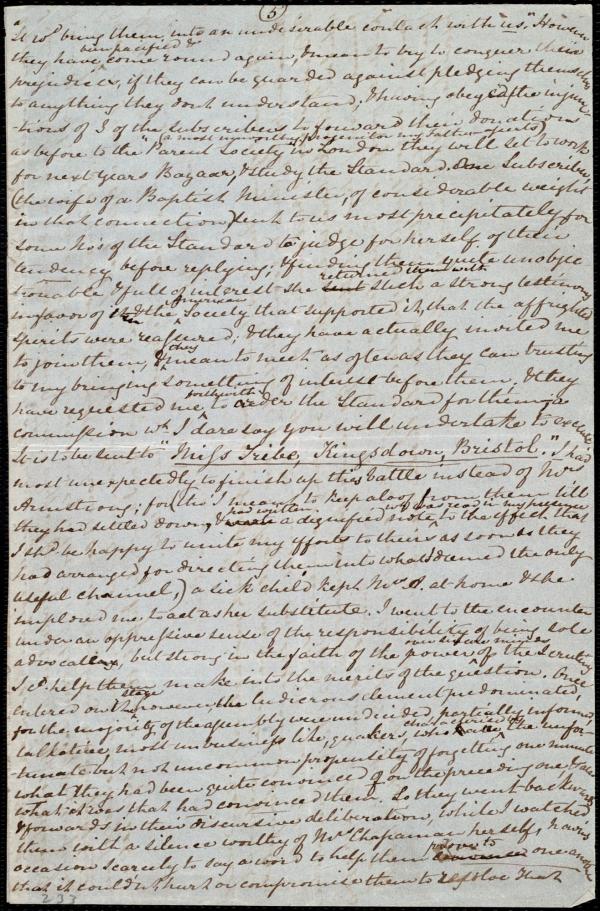 (5)
it wod. bring them into an undesirable contact with us." However
they have been pacified & come round again, & mean to try to conquer their
prejudices, if they can be guarded against pledging themselves
to anything they dont understand; & having obeyed the injunc-
tions of 3 of the subscribers to forward their donations
as before to the "Parent Society" in London (a most unworthy progenitor my Father asserts) they will set to work
for next years Bazaar, & study the Standard. One Subscriber,
(the wife of a Baptist Minister, of considerable weight
in that connection) sent to us most precipitately for
some Nos. of the Standard to judge for herself of their
tendency before replying; & finding them quite unobjec
tionable & full of interest she returned them with such a strong testimony
in favor of it & the American Society that supported it, that the affrighted
spirits were reassured; & they have actually invited me
to join them, & they mean to meet as often as they can trusting
to my bringing something of interest before them, & they
have requested me forthwith to order the Standard for them, a
commission wh. I dare say you will undertake to execute
It is to be sent to "Miss Tribe, Kingsdown, Bristol." I had
most unexpectedly to finish up this battle instead of Mrs
Armstrong; for (tho' I meant to keep aloof from them till
they had settled down, & had written a dignified note wh. was read in my presence to the effect that
I shd. be happy to unite my efforts to theirs as soon as they
had arranged for directing them into what I deemed the only
useful channel,) a sick child kept Mrs A. at home & she
implored me to act as her substitute. I went to the encounter
under an oppressive sense of the responsibility of being sole
advocate, but strong in the faith of the power of the scrutiny
I cd. help them make into the merits of the question. Once
entered on the stage however, the ludicrous element predominated,
for the majority of the assembly were undecided, partially informed,
talkative, most unbusiness like, quakers, characterised by the unfor-
tunate but not uncommon propensity of forgetting one minute
what they had been quite convinced of on the preceding one, &
what it was that had convinced them. So they went backwards
& forwards in their discursive deliberation, while I watched
them with a silence worthy of Mrs Chapman herself, having
occasion scarcely to say a word to help them prove to one another
that it couldn't hurt or compromise them to resolve that
233